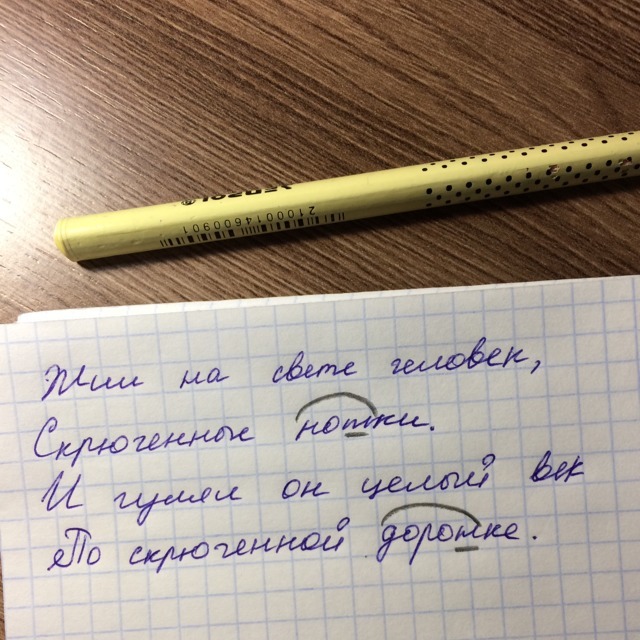 2100014600901
Жил на свете человек,
Скрюченные нотки.
И гулял он целый век
По скрюченной доротке.